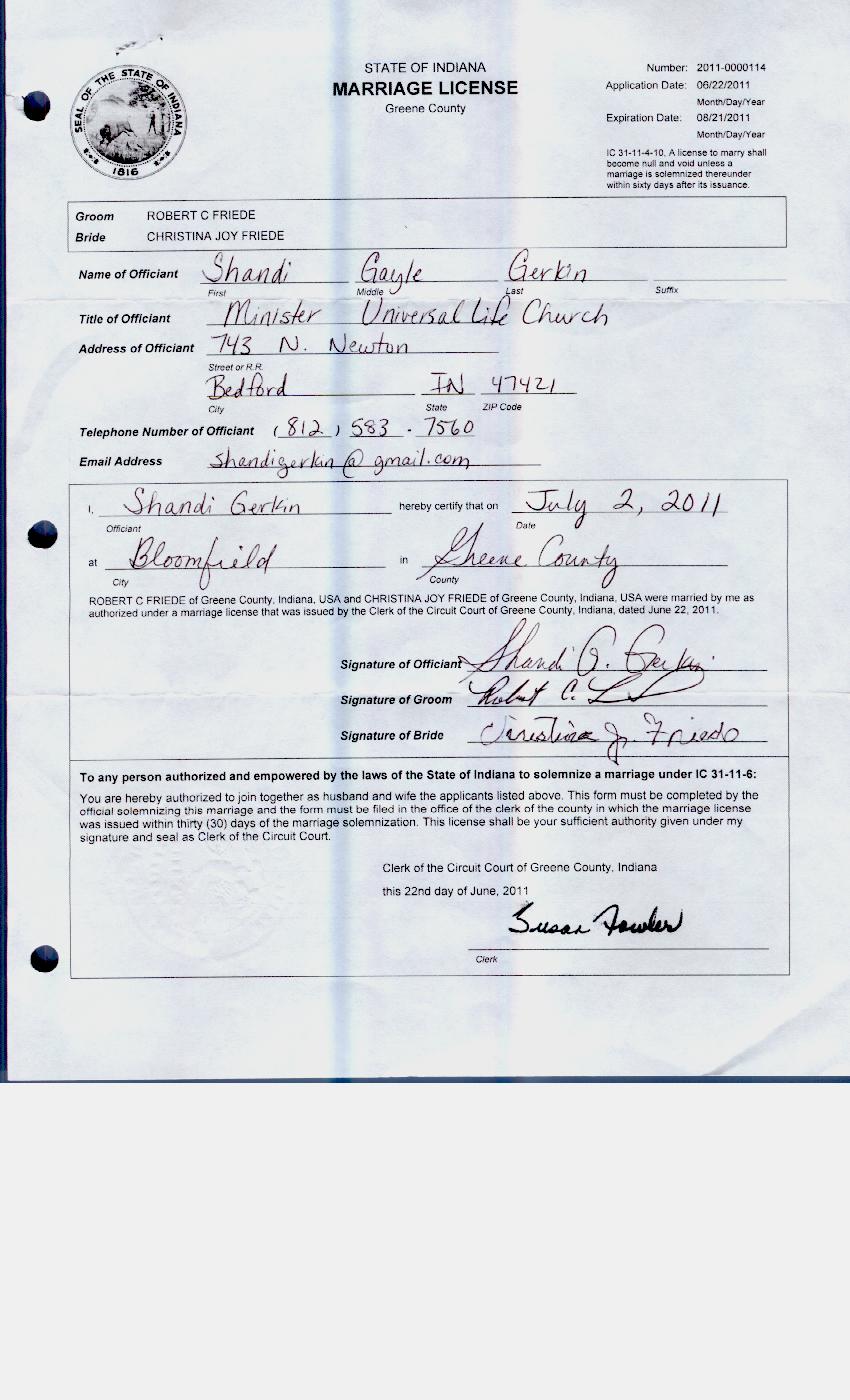 SEAL OF THE STATE OF INDIANA
1816
STATE OF INDIANA
MARRIAGE LICENSE
Greene County
Number: 2011-0000114
Application Date: 06/22/2011
Month/Day/Year
Expiration Date: 08/21/2011
Month/Day/Year
IC 31-11-4-10, A license to marry shall
become null and void unless a
marriage is solemnized thereunder
within sixty days after its issuance.
Groom ROBERT C FRIEDE
Bride CHRISTINA JOY FRIEDE
Name of Officiant Shandi Gayle Gerkin
First Middle Last Suffix
Title of Officiant Minister Universal Life Church
Address of Officiant 743 N. Newton
Street or R.R.
Bedford IN 47421
City State ZIP Code
Telephone Number of Officiant (812) 583 - 7560
Email Address shandigerkin@gmail.com
I, Shandi Gerkin hereby certify that on July 2, 2011
Officiant Date
at Bloomfield in Greene County
City County
ROBERT C FRIEDE of Greene County, Indiana, USA and CHRISTINA JOY FRIEDE of Greene County, Indiana, USA were married by me as
authorized under a marriage license that was issued by the Clerk of the Circuit Court of Greene County, Indiana, dated June 22, 2011.
Signature of Officiant Shandi G. Gerkin
Signature of Groom Robert C.
Signature of Bride Christina J. Friede
To any person authorized and empowered by the laws of the State of Indiana to solemnize a marriage under IC 31-11-6:
You are hereby authorized to join together as husband and wife the applicants listed above. This form must be completed by the
official solemnizing this marriage and the form must be filed in the office of the clerk of the county in which the marriage license
was issued within thirty (30) days of the marriage solemnization. This license shall be your sufficient authority given under my
signature and seal as Clerk of the Circuit Court.
Clerk of the Circuit Court of Greene County, Indiana
this 22nd day of June, 2011
Susan Fowler
Clerk